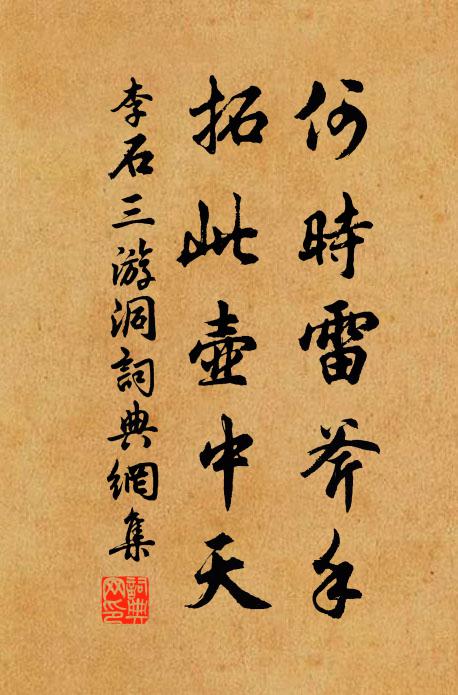 何時雷斧手
拓此壺中天
李石三游洞詞典網集
詞典網印